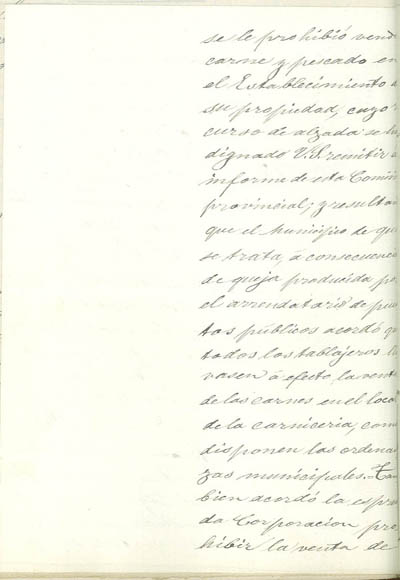 se le prohibió vend
carne y pescado en
el Establecimiento
su propiedad, cuyo
curso de alzada se h
dignado V.S. remitir
informe de esta Comis
provincial; y resultan
que el Municipio de qu
se trata, á consecuenci
de queja producida po
el arrendatario de pue
tos públicos acordó q
todos los tablajeros ll
vasen á efecto, la vent
de las carnes en el loca
de la carniceria, com
disponen las ordena
zas municipales. Ta
bien acordó la espre
da Corporacion pro
hibir la venta de